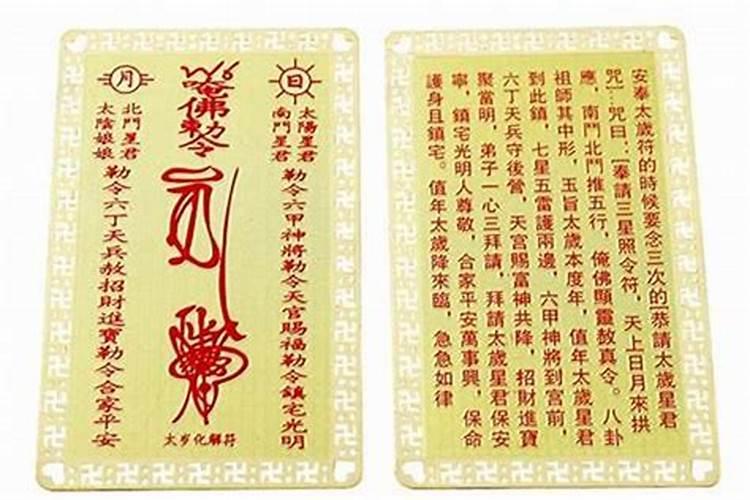 日
太陽星君
南鬥星君
勒令六甲神將勒令天官賜福勒令鎮宅光明
唵佛勅令
月
北鬥星君
太陰娘娘
勒令六丁天兵赦招財進寶勒令合家平安
太岁化解符
安奉太歲符的時候要念三次的[恭請太歲星君
咒]:咒曰:[奉請三星照令符，天上日月來拱
應，南鬥北鬥推五行，俺佛顯靈敖真令。八卦
祖師其中形，玉旨太歲本度年，值年太歲星君
到此鎮，七星五雷護兩邊，六甲神將到宫前，
六丁天兵守後營，天宫賜富神共降，招財進寶
聚當明，弟子一心三拜請，拜請太歲星君保安
寧，鎮宅光明人尊敬，合家平安萬事興，保命
護身且鎮宅。值年太歲降來臨，急急如律